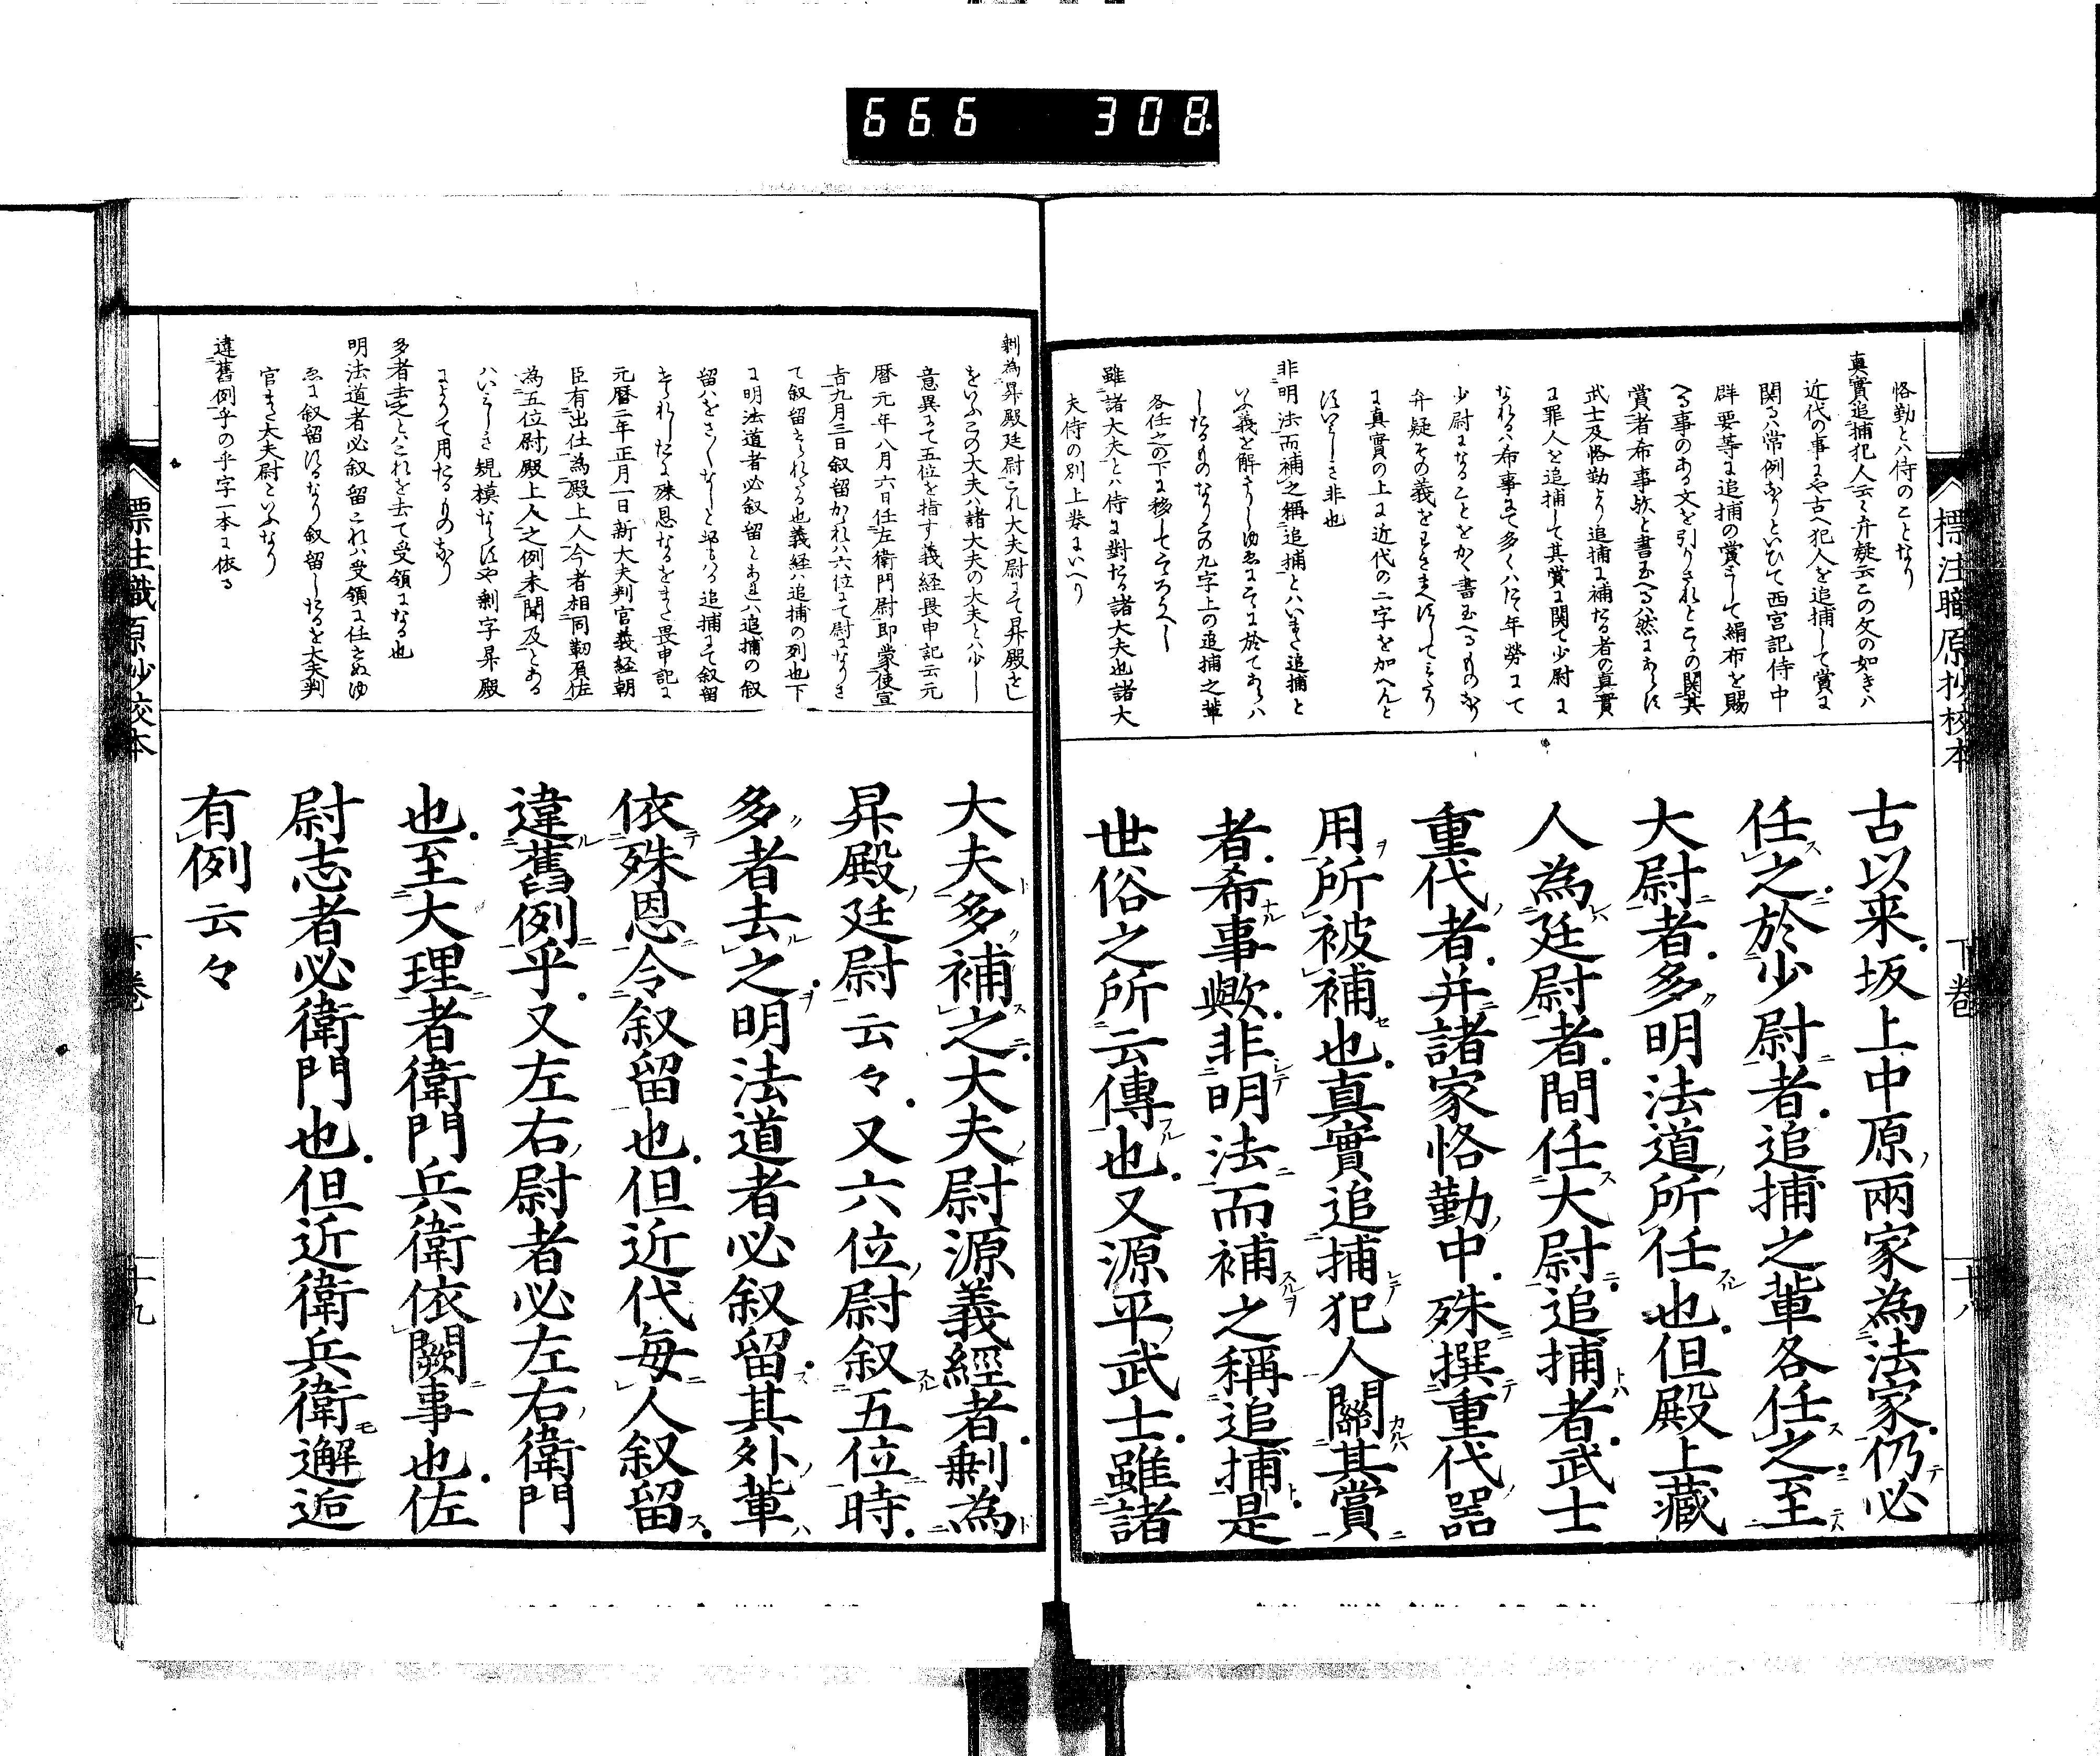 666 308
標注職原抄校本 下巻 十八
恪勤とハ侍のことなり
真實追捕犯人云々弁疑云この文の如きハ
近代の事にや古へ犯人を追捕して賞に
関るハ常例なりといひて西宮記侍中
群要等に追捕の賞として絹布を賜
へる事のある文を引り
賞者希事歟と書玉へるハ然にあらす
武士及恪勤より追捕に補たる者の真實
に罪人を追捕して其賞に関て少尉に
なれるハ希事にて多くハ
年勞にて
少尉になることをかく書玉へるものなり
弁疑その義をわきまへすして
に真實の上に近代の二字を加へんと
非也
非明法而補之稱追捕とハいまた追捕と
いふ義を解
したるものなりこの九字上の追捕之輩
各任之の下に移してみるへし
雖諸大夫とハ侍に對たる諸大夫也諸大
夫侍の別上巻にいへり
古以来坂上中原兩家為法家仍必
任之於少尉者追捕之輩各任之至
大尉者多明法道所任也但殿上藏
人為廷尉者間任大尉追捕者武士
重代者并諸家恪勤中殊撰重代器
用所被補也真實追捕犯人關其賞
者希事歟非明法而補之稱追捕是
世俗之所云傳也又源平武士雖諸
剰為昇殿廷尉これ大夫尉にて昇殿をし
をいふこの大夫ハ諸大夫の大夫とハ少し
意異にて五位を指す義経畏申記云元
暦元年八月六日任左衛門尉即蒙使宣
旨九月三日叙留かゝれハ六位にて尉になりき
て叙留せられたる也義経ハ追捕の列也下
に明法道者必叙留とあれハ追捕の叙
留ハをさ〱なし
追捕にて叙留
せられしたに殊恩なるをまた畏申記に
元暦二年正月一日新大夫判官義経朝
臣有出仕為殿上人今者相同靭負佐
為五位尉殿上人之例未聞及とある
ハいミしき規模ならすや剰字昇殿
によりて用たるものなり
多者去之とハこれを去て受領になる也
明法道者必叙留これハ受領に任さぬゆ
ゑに叙留するなり叙留したるを大夫判
官また大夫尉といふなり
違舊例乎の乎字一本に依る
大夫多補之大夫尉源義經者剰為
昇殿廷尉云々又六位尉叙五位時
多者去之明法道者必叙留其外輩
依殊恩令叙留也但近代毎人叙留
違舊例乎又左右尉者必左右衛門
也至大理者衛門兵衛依闕事也佐
尉志者必衛門也但近衛兵衛邂逅
有例云々
標注職原抄校本 下巻 十九